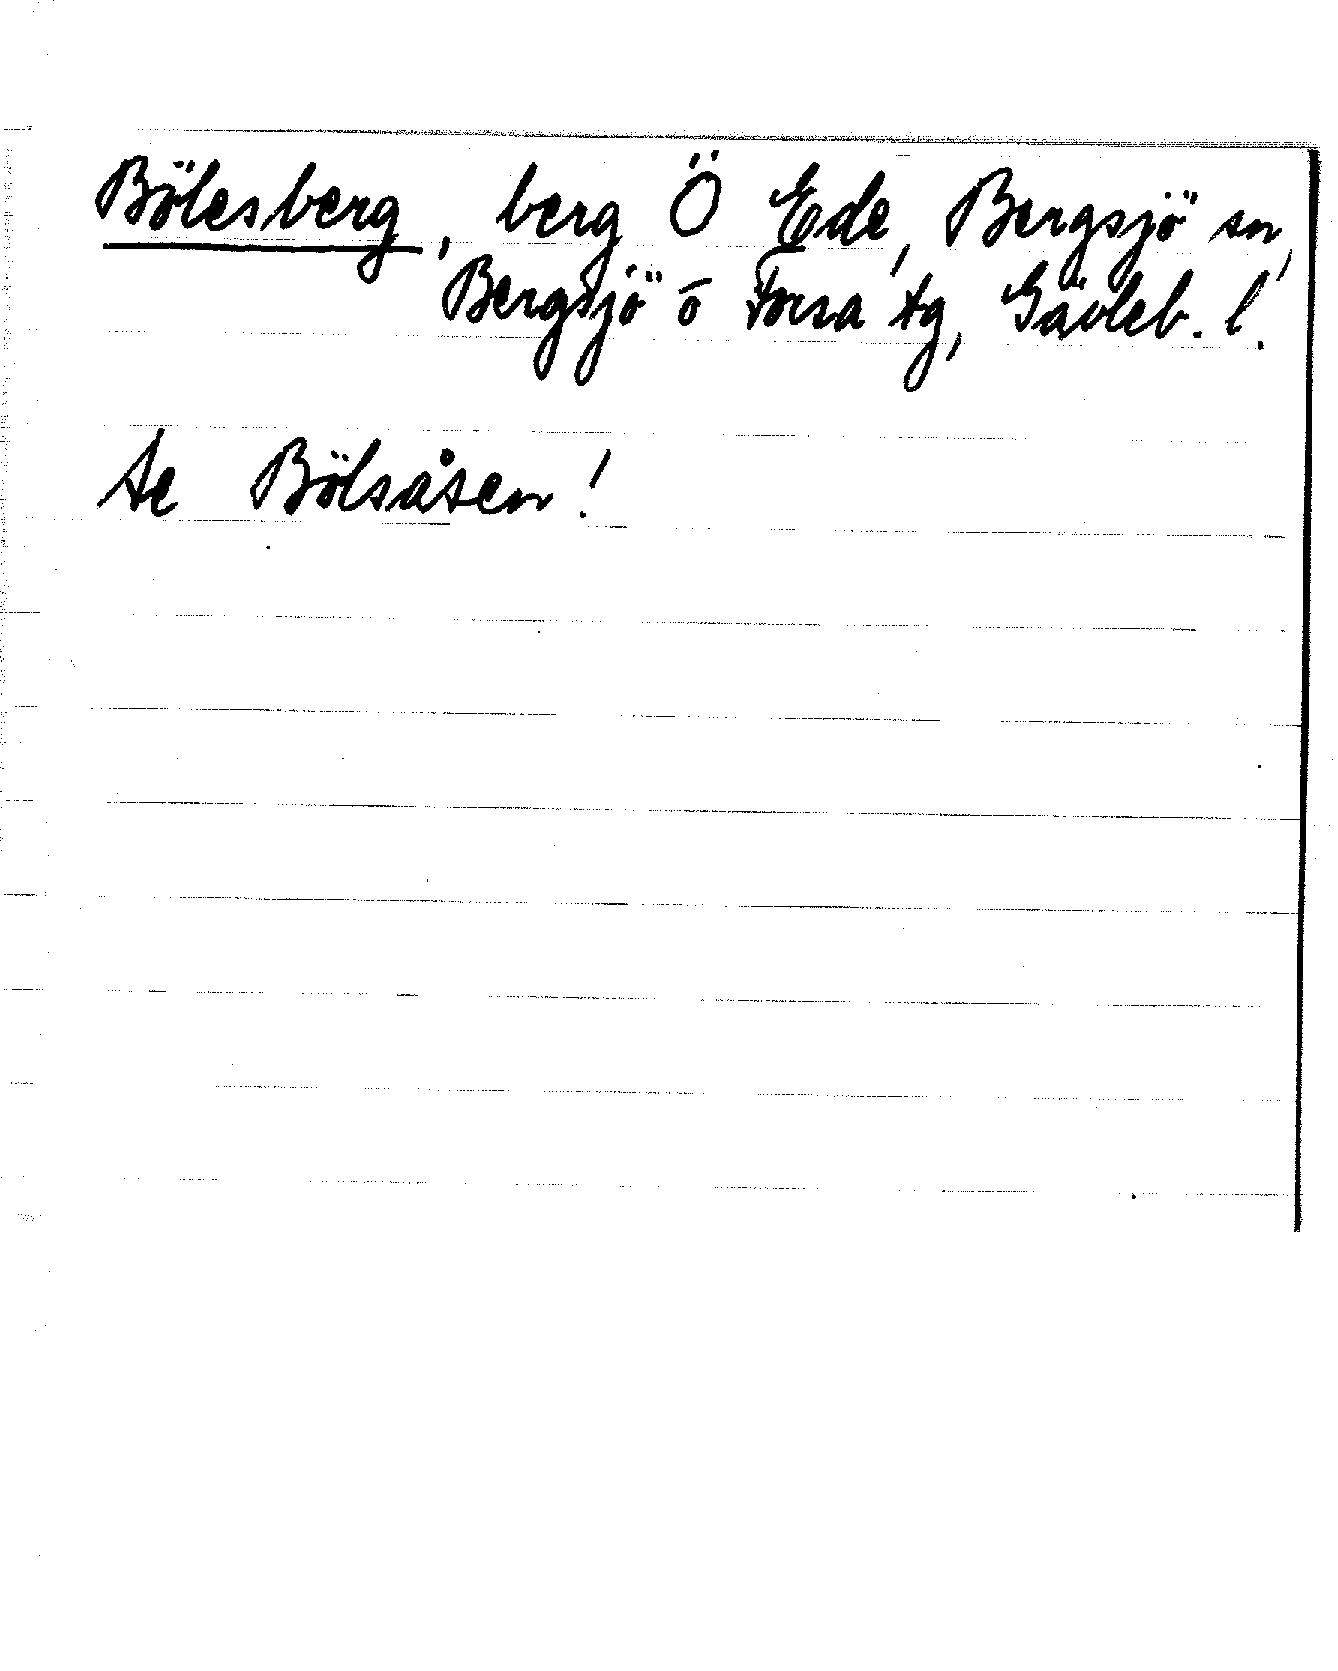 Bölesberg, berg Ö Ede, Bergsjö sn,
Bergsjö o Forsa tg, Gävleb. l.
Se Bölsåsen!